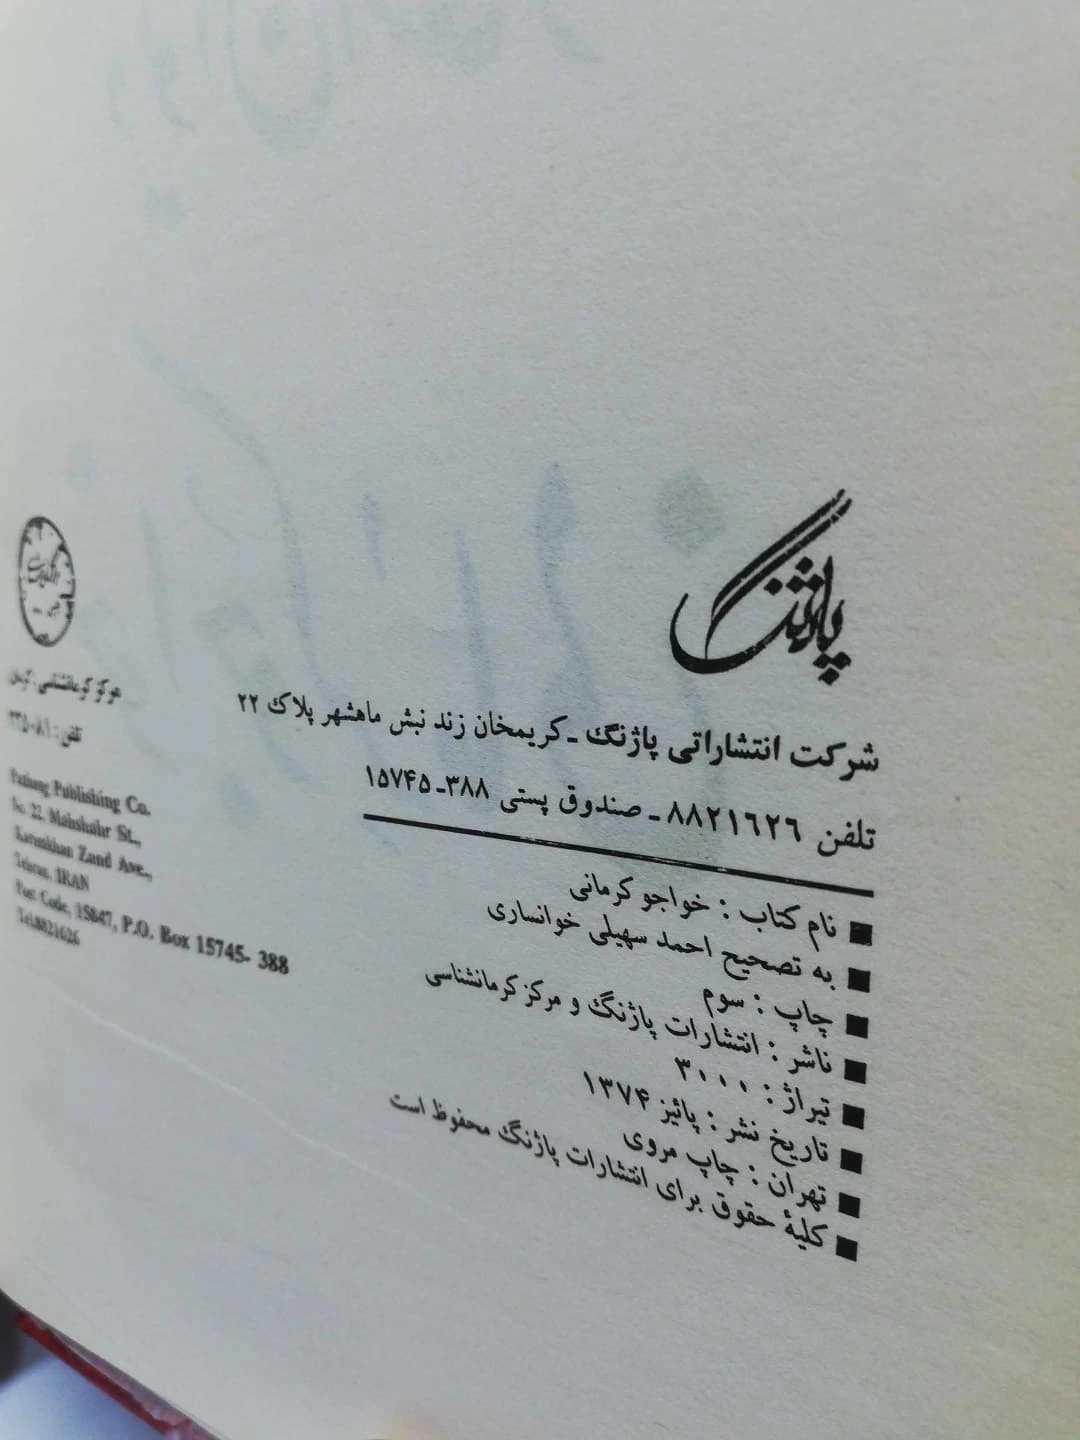 پاژنگ
شرکت انتشاراتی پاژنگ ـ کریمخان زند نبش ماهشهر پلاک ۲۲
تلفن ۸۸۲۱۶۲۶ ـ صندوق پستی ۳۸۸ـ۱۵۷۴۵
نام کتاب : خواجو کرمانی
به تصحیح احمد سهیلی خوانساری
چاپ : سوم
ناشر : انتشارات پاژنگ و مرکز کرمانشناسی
تیراژ : ۳۰۰۰
تاریخ نشر : پائیز ۱۳۷۴
تهران : چاپ مروی
کلیهٔ حقوق برای انتشارات پاژنگ محفوظ است
مرکز کرمانشناسی : کرمان
تلفن : ۲۳۵۰۸۱
Pazhang Publishing Co.
No. 22, Mahshahr St.,
Karimkhan Zand Ave.,
Tehran, IRAN
Post Code, 15847, P.O. Box 15745- 388
Tel:8821626